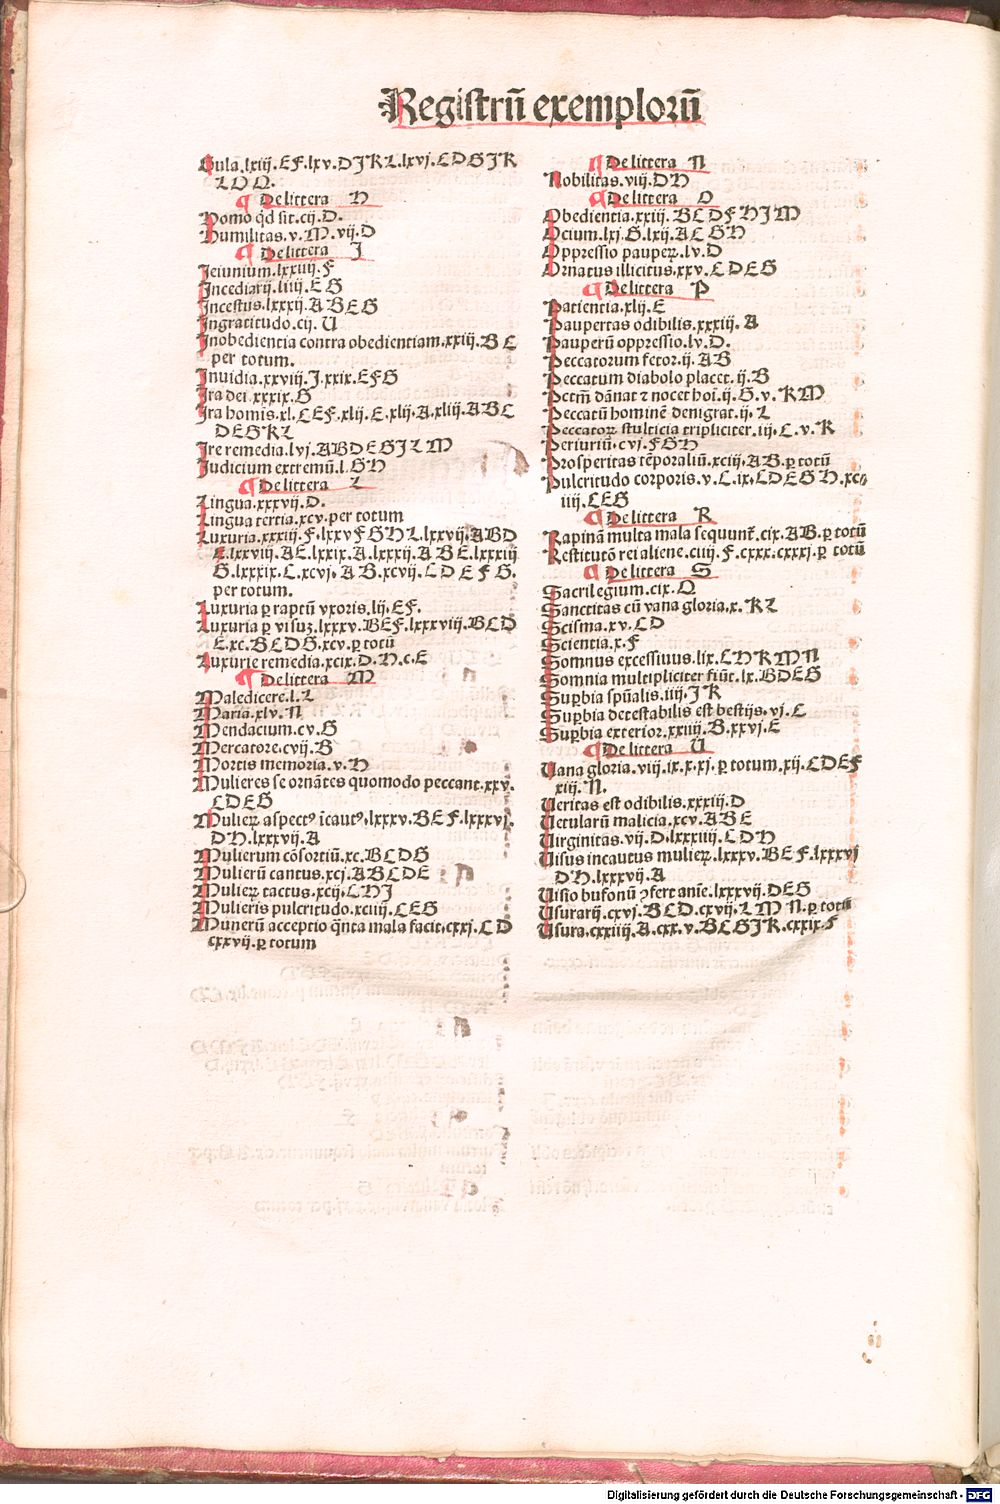 Registrū exemplorū
Gula.lxiij.EF.lxv.DJKL.lxvj.CDGJK
LOQ.
¶ De littera H
Homo qd sit.cij.D.
Humilitas.v.M.vij.D
¶ De littera J
Jeiunium.lxxviij.F
Incediarij.iiij.EG
Incestus.lxxxij.ABEG
Ingratitudo.cij.U
Inobedientia contra obedientiam.xxiij.BC
per totum.
Inuidia.xxviij.J.xxix.EFG
Ira dei.xxxix.G
Ira homis.xl.CEF.xlij.E.xlij.A.xliij.ABC
DEGKL
Ire remedia.lvj.ABDEGJLM
Judicium extremū.l.GH
¶ De littera L
Lingua.xxxvij.D.
Lingua tertia.xcv.per totum
Luxuria.xxxiij.F.lxxvFGHL.lxxvij.ABD
E.lxxviij.AE.lxxix.A.lxxxij.ABE.lxxxiij
G.lxxxix.C.xcvj.AB.xcvij.CDEFG.
per totum.
Luxuria ꝑ raptū vxoris.lij.EF.
Luxuria ꝑ visuʒ.lxxxv.BEF.lxxxviij.BCD
E.xc.BCDG.xcv.ꝑ totū
Luxurie remedia.xcix.D.H.c.E
¶ De littera M
Maledicere.l.L
Maria.xlv.N
Mendacium.cv.G
Mercatore.cvij.B
Mortis memoria.v.H
Mulieres se ornātes quomodo peccant.xxv.
CDEG
Mulieꝝ aspectꝰ īcautꝰ.lxxxv.BEF.lxxxvj.
DH.lxxxvij.A
Mulierum cōsortiū.xc.BCDG
Mulierū cantus.xcj.ABCDE
Mulieꝝ tactus.xcij.CHJ
Mulieris pulcritudo.xciiij.CEG
Munerū acceptio q̄nta mala facit.cxxj.CD
cxxvij.ꝑ totum
¶ De littera N
Nobilitas.viij.DH
¶ De littera O
Obedientia.xxiij.BCDFHJM
Ocium.lxj.G.lxij.ACGH
Oppressio pauperꝝ.lv.D
Ornatus illicitus.xxv.CDEG
¶ De littera P
Patientia.xlij.E
Paupertas odibilis.xxxiij.A
Pauperū oppressio.lv.D.
Peccatorum fetor.ij.AB
Peccatum diabolo placet.ij.B
Pctm̄ dānat ⁊ nocet hoī.ij.G.v.KM
Peccatū hominē denigrat.ij.L
Peccatoꝝ stulticia tripliciter.iij.C.v.K
Periuriū.cvj.FGH
Prosperitas tēporaliū.xciij.AB.ꝑ totū
Pulcritudo corporis.v.C.ix.CDEGH.xc
iiij.CEG
¶ De littera R
Rapinā multa mala sequunt̄.cix.AB.ꝑ totū
Restitutō rei aliene.ciiij.F.cxxx.cxxxj.ꝑ totū
¶ De littera S
Sacrilegium.cix.Q
Sanctitas cū vana gloria.x.KL
Scisma.xv.CD
Scientia.x.F
Somnus excessiuus.lix.CHKMN
Somnia multipliciter fiūt.lx.BDEG
Suꝑbia spūalis.iiij.JK
Suꝑbia detestabilis est bestijs.vj.C
Suꝑbia exterior.xxiiij.B.xxvj.E
¶ De littera U
Vana gloria.viij.ix.x.xj.ꝑ totum.xij.CDEF
xiij.N.
Veritas est odibilis.xxxiij.D
Vetularū malicia.xcv.ABE
Virginitas.vij.D.lxxxiiij.CDH
Visus incautus mulieꝝ.lxxxv.BEF.lxxxvj
DH.lxxxvij.A
Visio bufonū ꝯfert anīe.lxxxvij.DEG
Vsurarij.cxvj.BCD.cxvij.LMN.ꝑ totū
Vsura.cxxiiij.A.cxx.v.BCGJK.cxxix.F
Digitalisierung gefördert durch die Deutsche Forschungsgemeinschaft - DFG